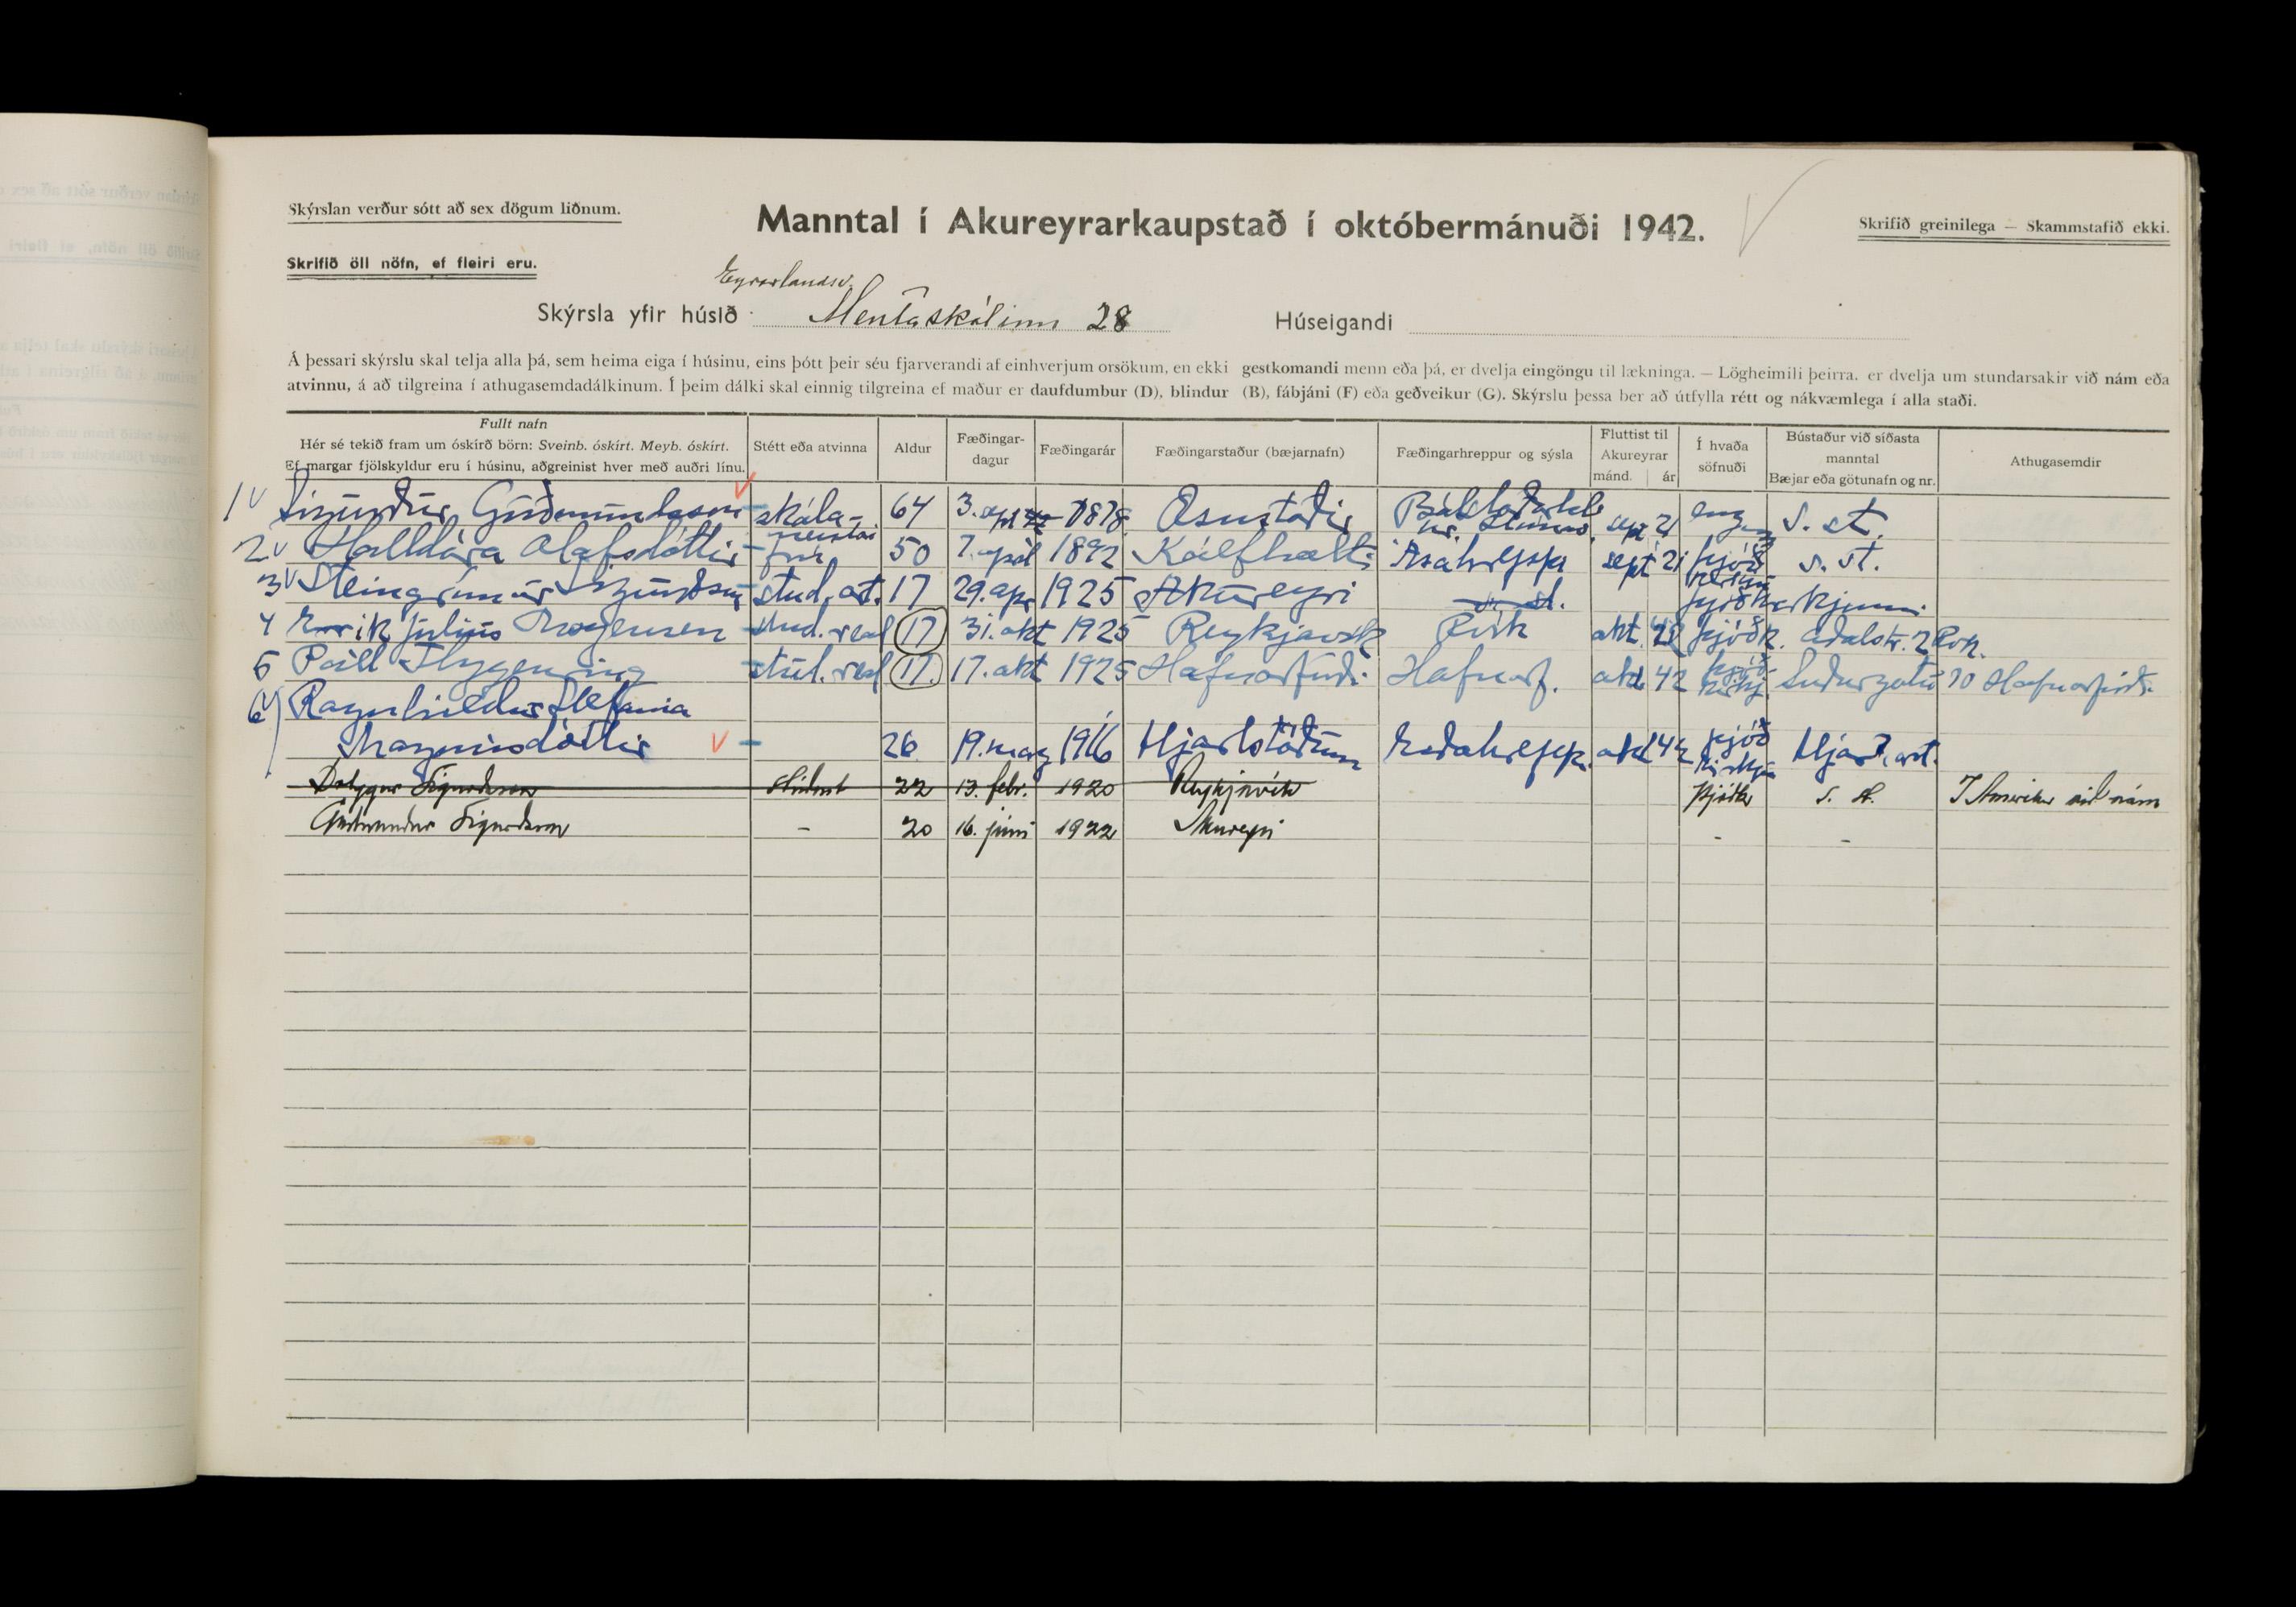 Skýrslan verður sótt að sex dögum liðnum.
Manntal í Akureyrarkaupstað í októbermánuði 1942.
Skrifið greinilega — Skammstafið ekki.
Skrifið öll nöfn, ef fleiri eru.
Eyrarlandsv.
Skýrsla yfir húsið Mentaskólinn 28 Húseigandi
Á þessari skýrslu skal telja alla þá, sem heima eiga í húsinu, eins þótt þeir séu fjarverandi af einhverjum orsökum, en ekki gestkomandi menn eða þá, er dvelja eingöngu til lækninga. — Lögheimili þeirra, er dvelja um stundarsakir við nám eða
atvinnu, á að tilgreina í athugasemdadálkinum. Í þeim dálki skal einnig tilgreina ef maður er daufdumbur (D), blindur (B), fábjáni (F) eða geðveikur (G). Skýrslu þessa ber að útfylla rétt og nákvæmlega í alla staði.
Fullt nafn
Hér sé tekið fram um óskírð börn: Sveinb. óskírt. Meyb. óskírt.
Ef margar fjölskyldur eru í húsinu, aðgreinist hver með auðri línu.
Stétt eða atvinna
Aldur
Fæðingar-
dagur
Fæðingarár
Fæðingarstaður (bæjarnafn)
Fæðingarhreppur og sýsla
Fluttist til
Akureyrar
mánd. ár
Í hvaða
söfnuði
Bústaður við síðasta
manntal
Bæjar eða götunafn og nr.
Athugasemdir
1 Sigurður Guðmundsson skóla-meistari 64 3. sept 1878 Æsustaðir sept 21 engum s. st.
2 Halldóra Ólafsdóttir frú 50 7. apríl 1892 Kálfholti Ásahreppi sept 21 þjóðkirkju s. st.
3 Steingrímur Sigurðsson stud. art. 17 29. apr 1925 Akureyri s. st. þjóðkirkjunni
4 Erik Júlíus Mogensen stud. real 17 31. okt 1925 Reykjavík Rvík okt. 42 þjóðk. Aðalstr. 2 Rvk.
5 Páll Flygenring stud. real 17. 17. okt 1925 Hafnarfirði Hafnarf. okt 42 þjóðkirkj. Suðurgötu 70 Hafnarfirði.
6 Ragnhildur Stefanía
Magnúsdóttir 26 19. marz 1916 Hjartstöðum Eiðahrepp. okt 42 þjóðkirkju
Sigurðsson Stúdent 22 13. febr. 1920 Reykjavík Þjóðk s. st. Í Ameríku við nám
Guðmundur Sigurðsson - 20 16. júní 1922 Akureyri - -